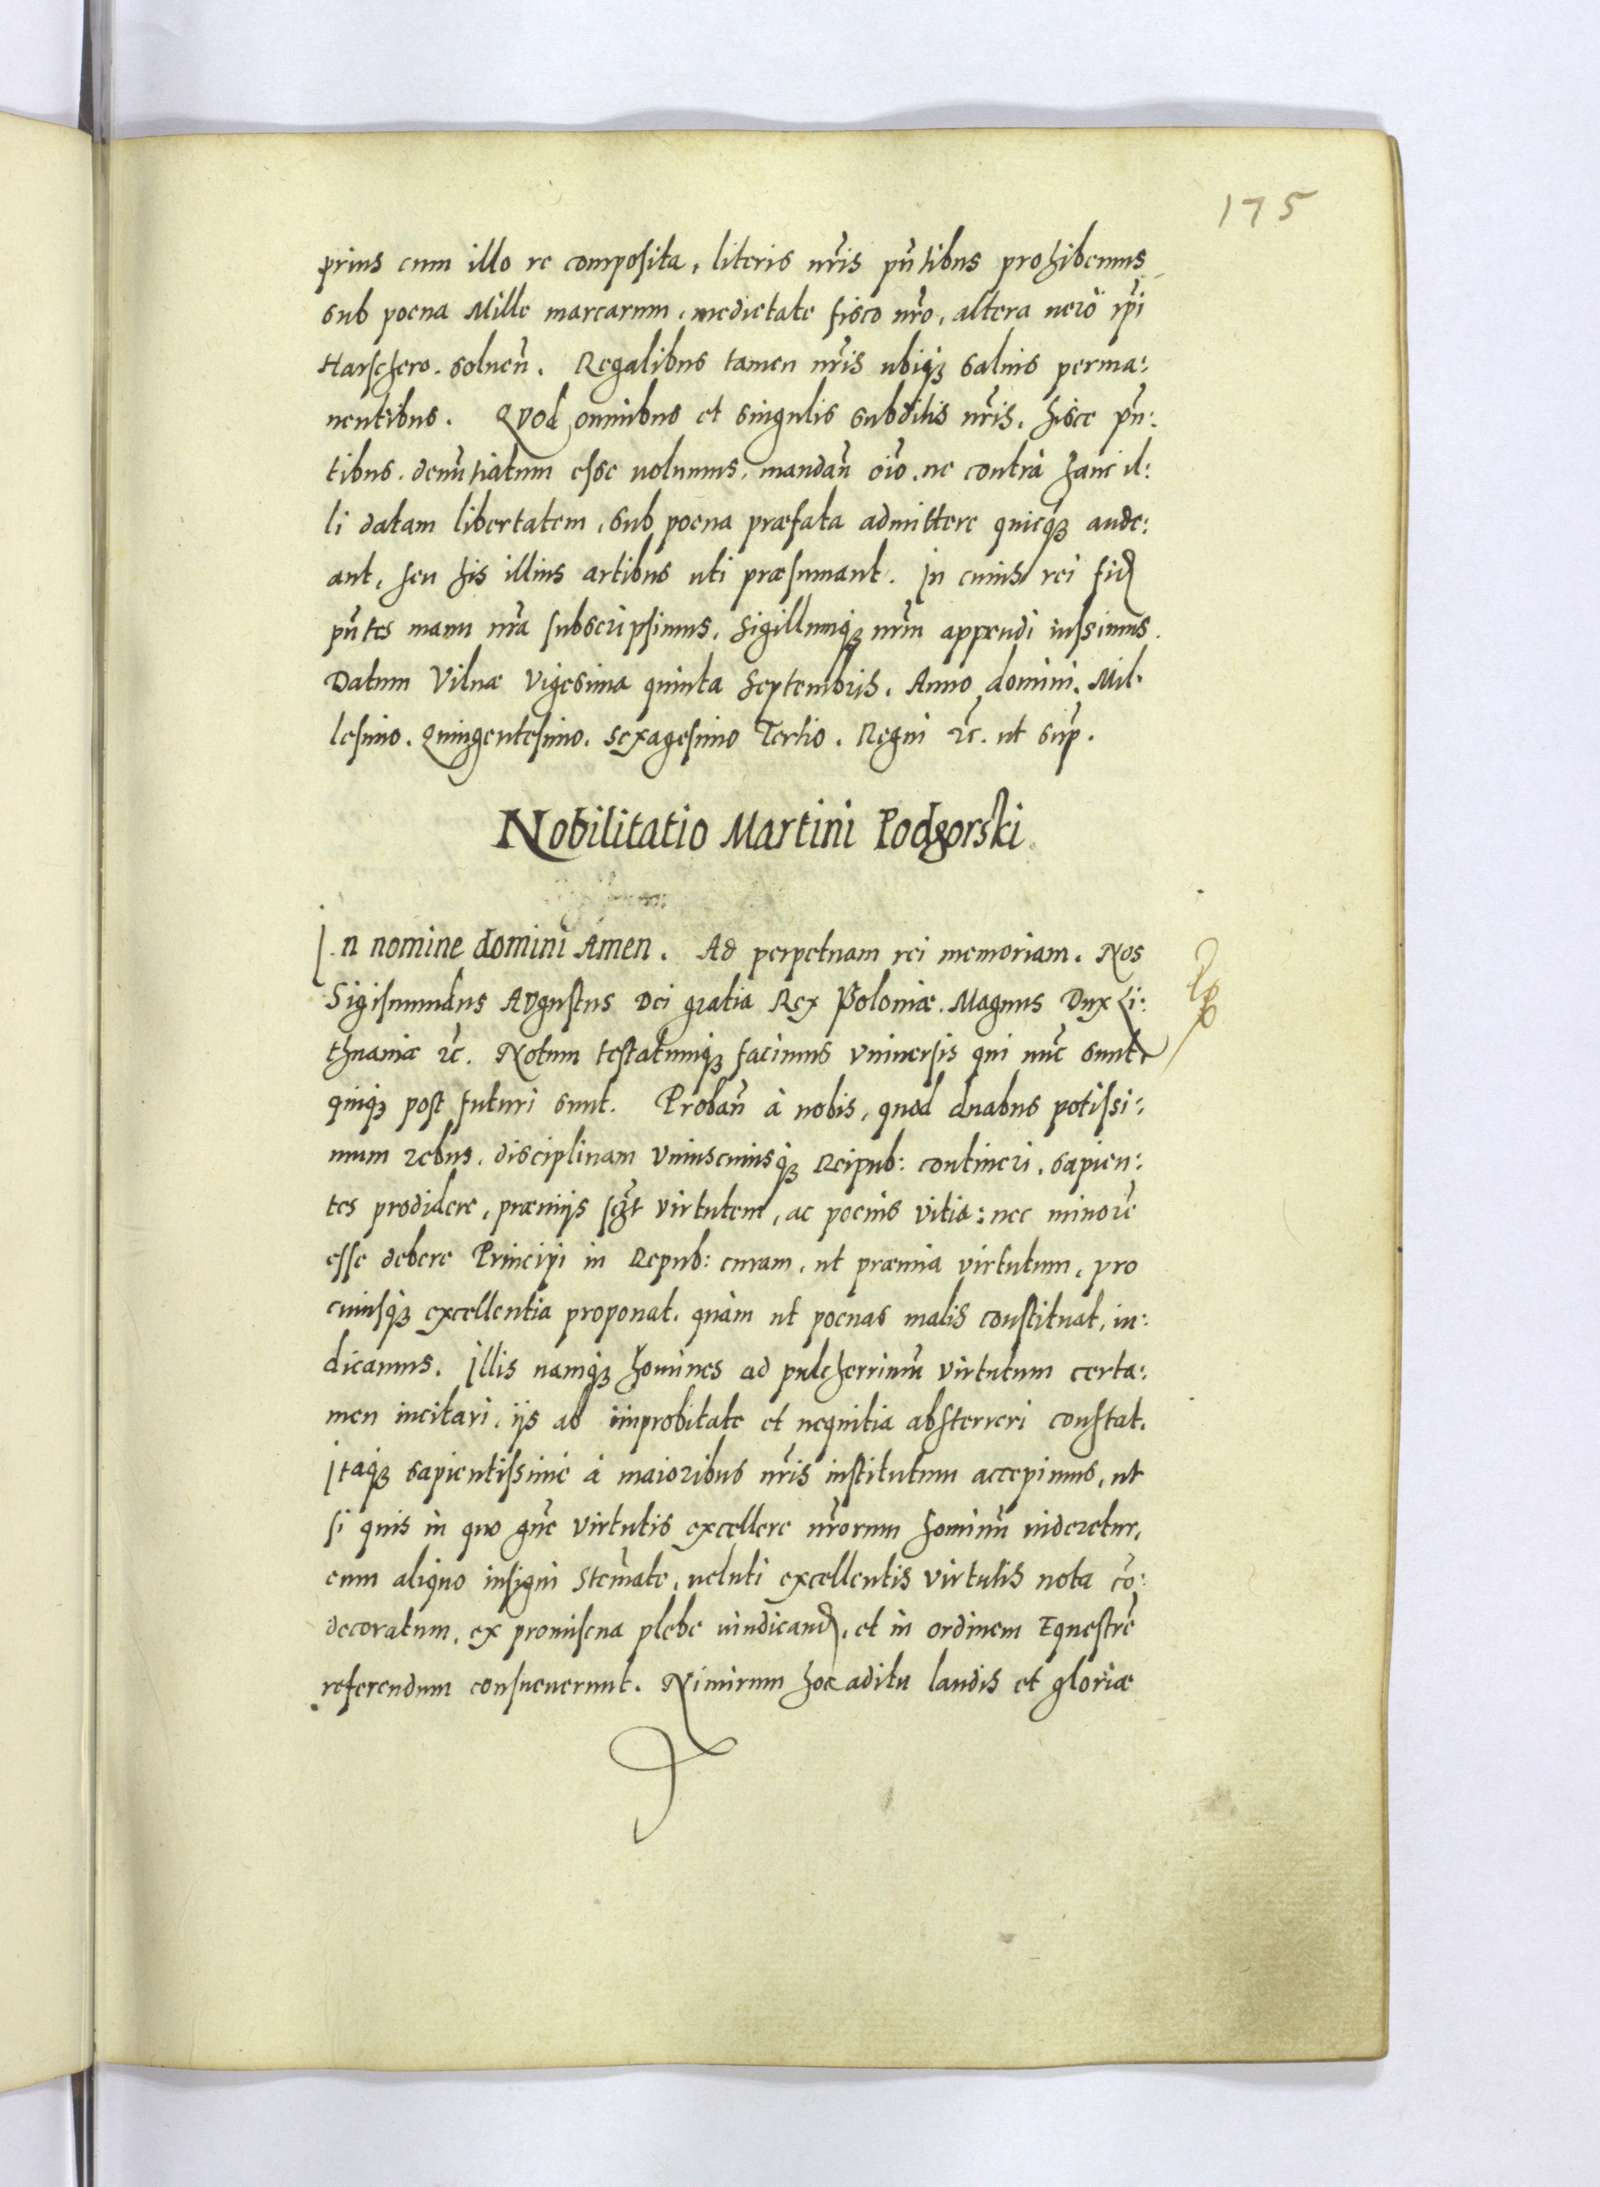 175
prius cum illo re composita, literis nr̃is pñtibus prohibemus
sub poena Mille marcarum, medietate fisco nr̃o, altera uerò ip̃i
Harschero. soluen̄. Regalibus tamen nr̃is ubiq; saluis perma:
nentibus. Quod omnibus et singulis subditis nr̃is, hisce pñ:
tibus. denũtiatum esse uolumus, mandan̄ oĩo. ne contrà hanc il:
li datam libertatem, sub poena præfata admittere quicq; aude:
ant, seu his illius artibus uti præsumant. In cuius rei fid̃
pñtes manu nr̃a subscripsimus, Sigillumq; nr̃m appendi iussimus.
Datum Vilnæ Vigesima quinta Septembris. Anno domini. Mil:
lesimo. Quingentesimo. Sexagesimo Tertio. Regni &c̃. ut sup̃.
Nobilitatio Martini Podgorski
In nomine domini Amen. Ad perpetuam rei memoriam. Nos
Sigismundus Augustus Dei gratia Rex Poloniæ. Magnus Dux Li:
thuaniæ &c̃. Notum testatumq; facimus Vniuersis qui nũc sunt,
quiq; post futuri sunt. Proban̄ à nobis, quod duabus potissi:
mum rebus. disciplinam Vniuscuiusq; Reipub: contineri, sapien:
tes prodidere, præmijs sc̃zt virtutem, ac poenis vitia: nec minorẽ
esse debere Principi in Repub: curam, ut præmia virtutum, pro
cuiusq; excellentia proponat. quàm ut poenas malis constituat, iu:
dicamus. Illis namq; homines ad pulcherrimũ virtutum certa:
men incitari, ijs ab improbitate et nequitia absterreri constat.
Itaq; sapientissimè à maioribus nr̃is institutum accepimus, ut
si quis in quo gñe virtutis excellere nr̃orum hominũ uideretur,
eum aliquo insigni Stem̃ate, ueluti excellentis virtutis nota cõ:
decoratum, ex promiscua plebe uindicand̃, et in ordinem Equestrẽ
referendum consueuerunt. Nimirum hoc aditu laudis et gloriæ